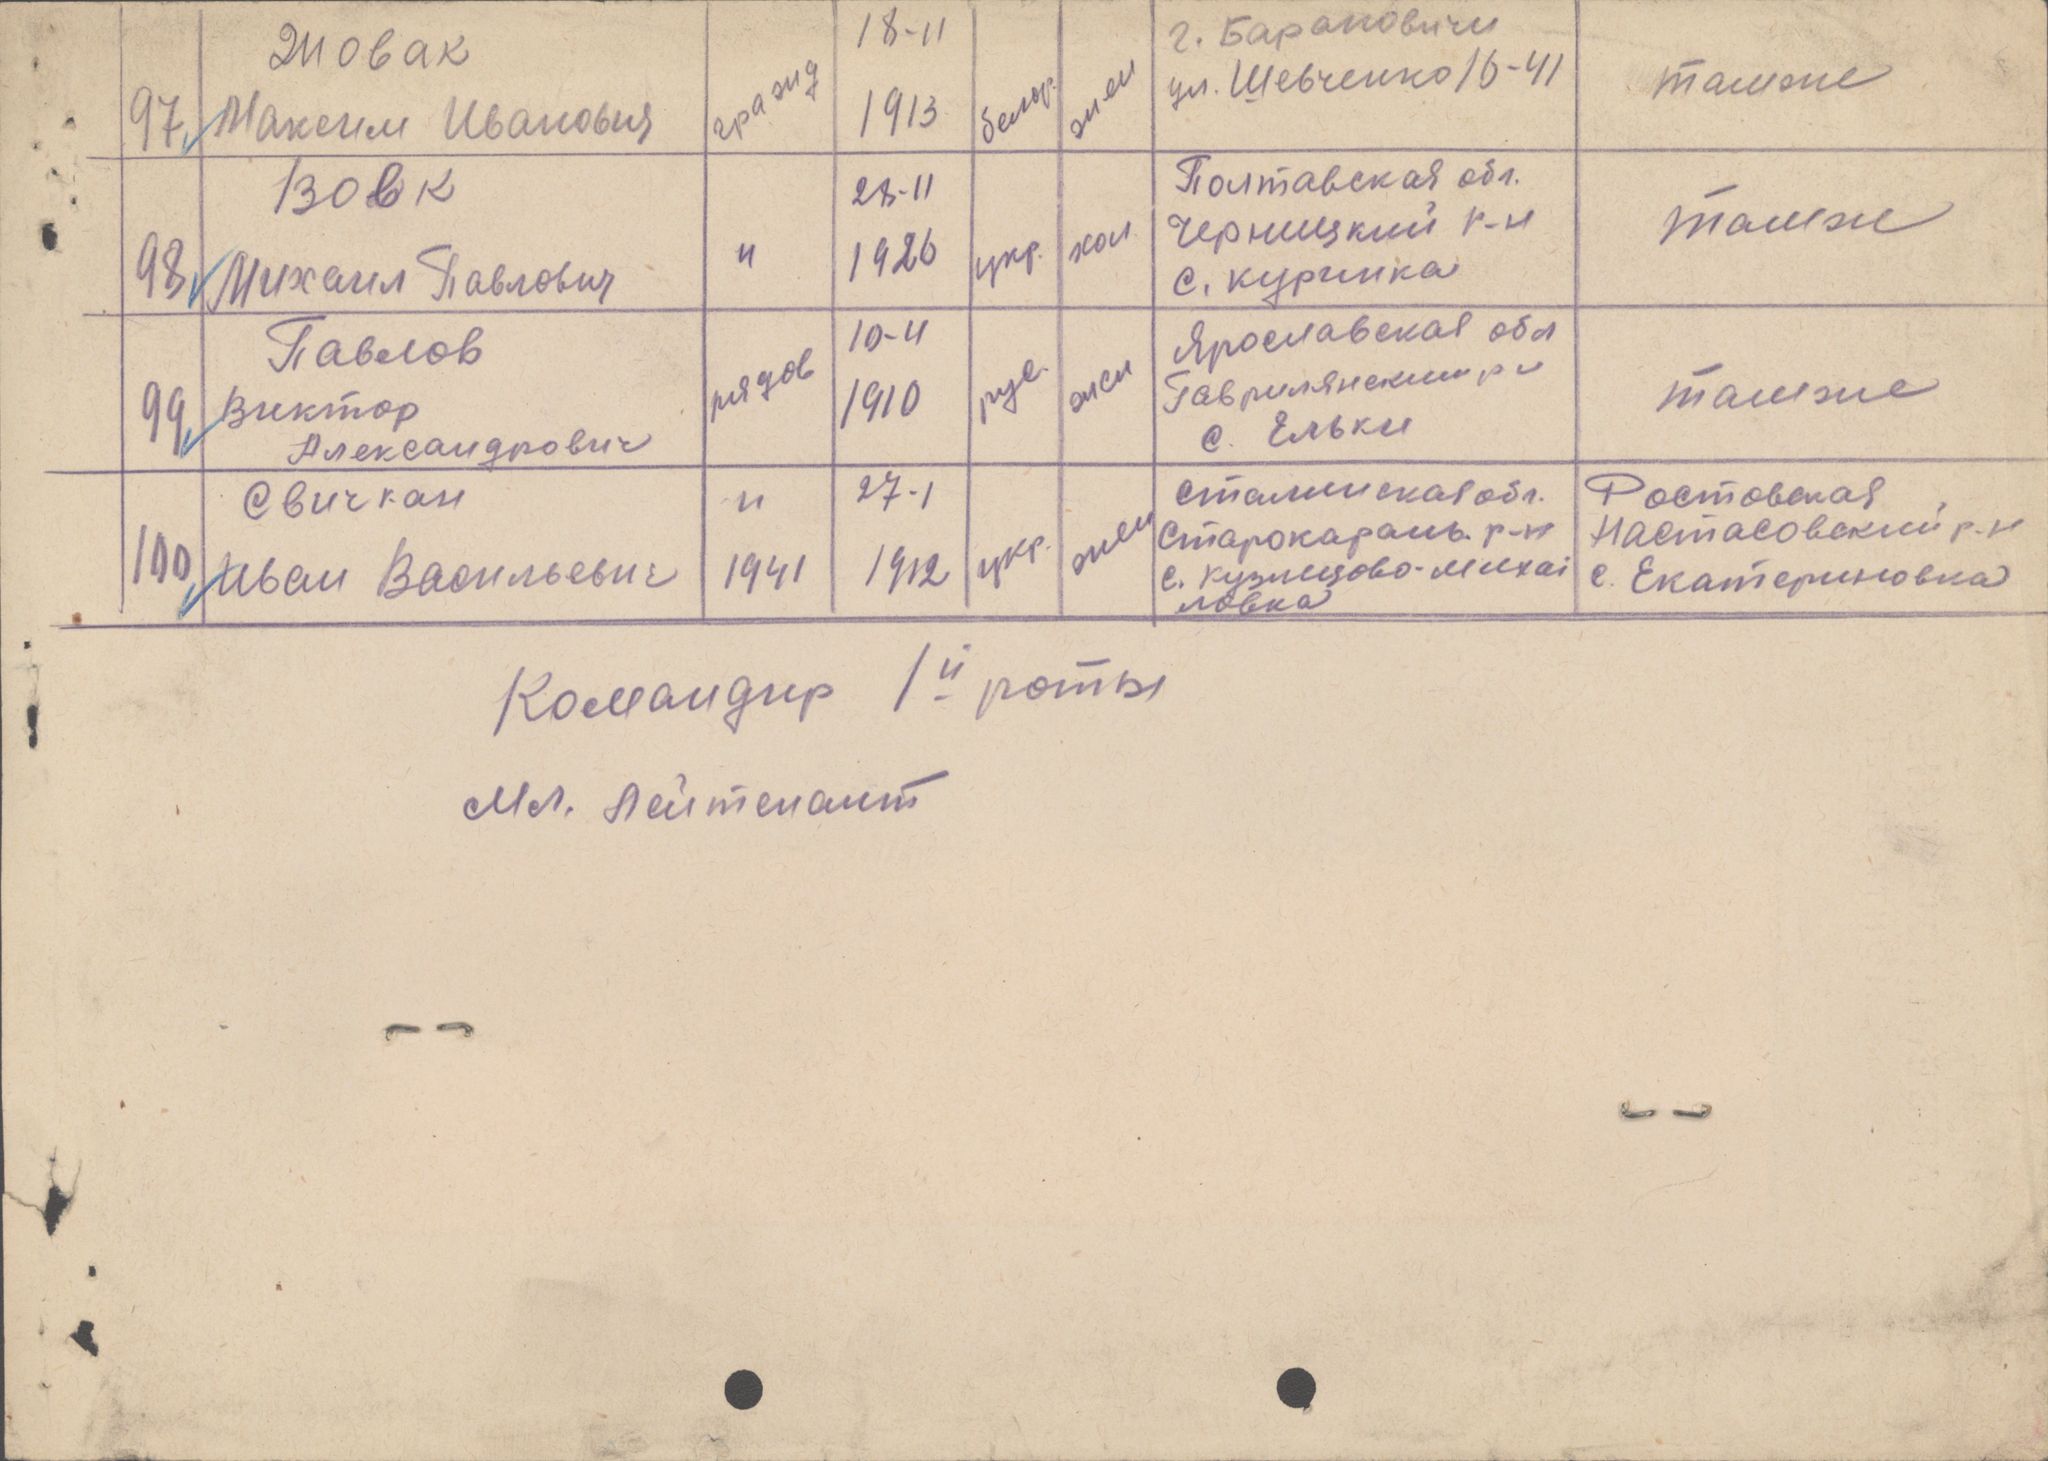 97 Жовак
Максим Иванович
гражд
18-11
1913
белор.
жен
г. Барановичи
ул. Шевченко 16-41
тамже
98 Вовк
Михаил Павлович
"
28-11
1926
укр.
хол
Полтавская обл.
Черницкий р-н
с. Куринка
тамже
99 Павлов
Виктор
Александрович
рядов
10-11
1910
рус.
жен
Ярославская обл
с. Ельки
тамже
100 Свичкан
Иван Васильевич
"
1941
27-1
1912
укр.
жен
Сталинская обл.
Старокарань. р-н
с. Кузнецово-Михай
ловка
Ростовская
Настасовский р-н
с. Екатериновка
Командир 1й роты
Мл. Лейтенант